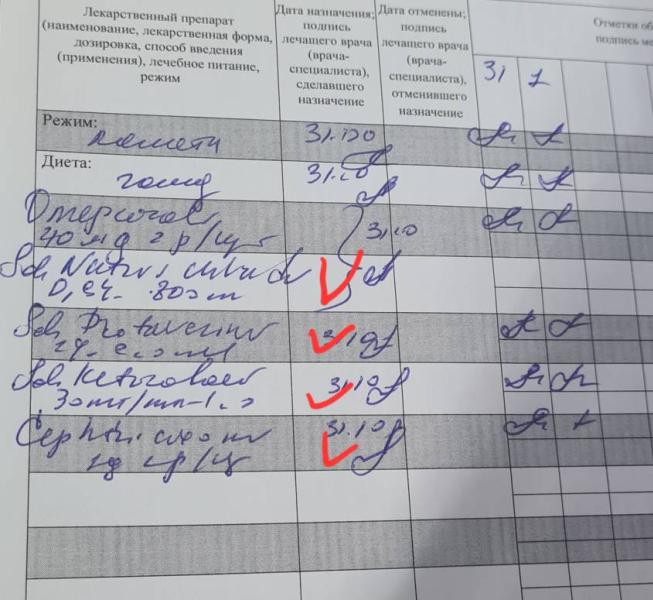 Лекарственный препарат
(наименование, лекарственная форма,
дозировка, способ введения
(применения), лечебное питание,
режим
Дата назначения;
подпись
лечащего врача
(врача-
специалиста),
сделавшего
назначение
Дата отменены;
подпись
лечащего врача
(врача-
специалиста),
отменившего
назначение
Отметки об
подпись ме
31 1
Режим:
31.10
Диета:
голод 31.10
Омепразол
40 мд 2 р/сут 31.10
Sol. Natrii chloridi
0,9% - 800 ml
Sol. Drotaverini 31.10
2% - 2.0 ml
Sol. Ketorolaci 31.10
30 mg/ml - 1.0
Cephtriaxoni 31.10